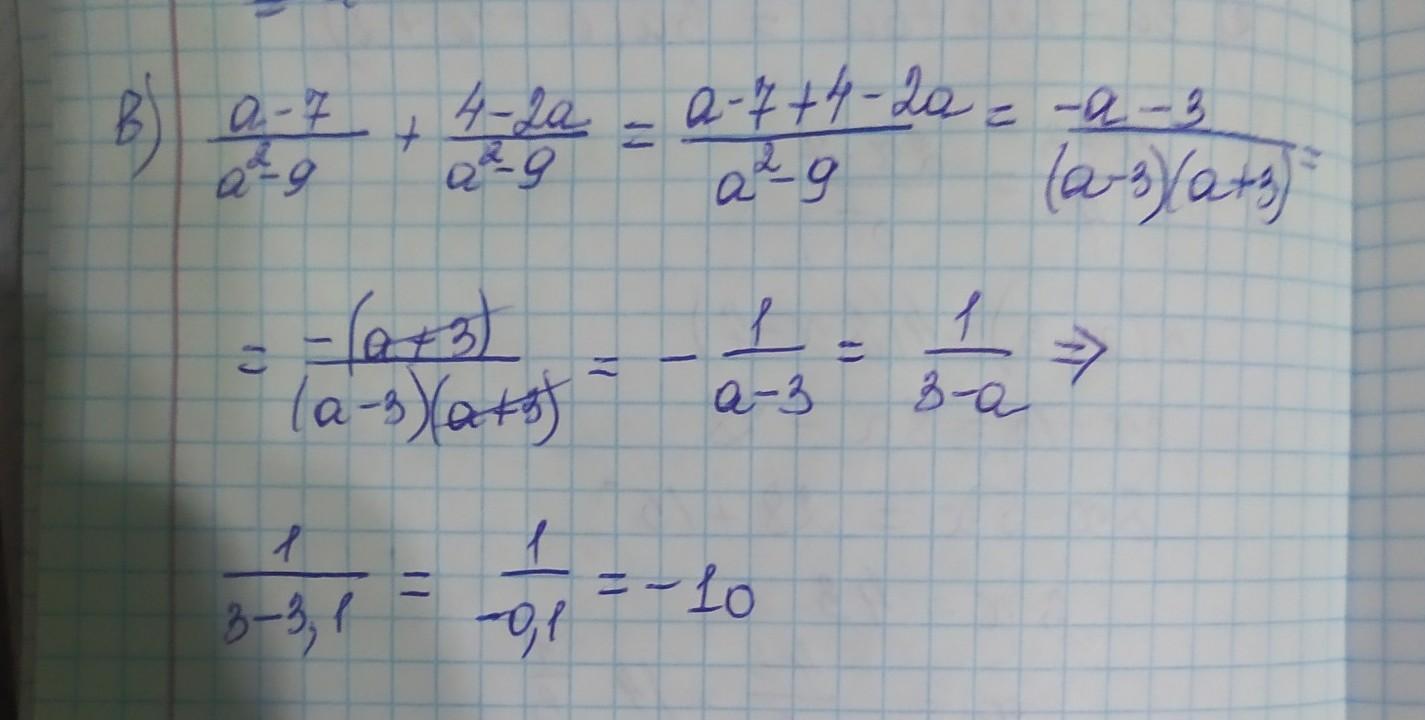 в) (a-7)/(a²-9) + (4-2a)/(a²-9) = (a-7+4-2a)/(a²-9) = (-a-3)/((a-3)(a+3)) =
= (-(a+3))/((a-3)(a+3)) = - 1/(a-3) = 1/(3-a) ⇒
1/(3-3,1) = 1/(-0,1) = -10